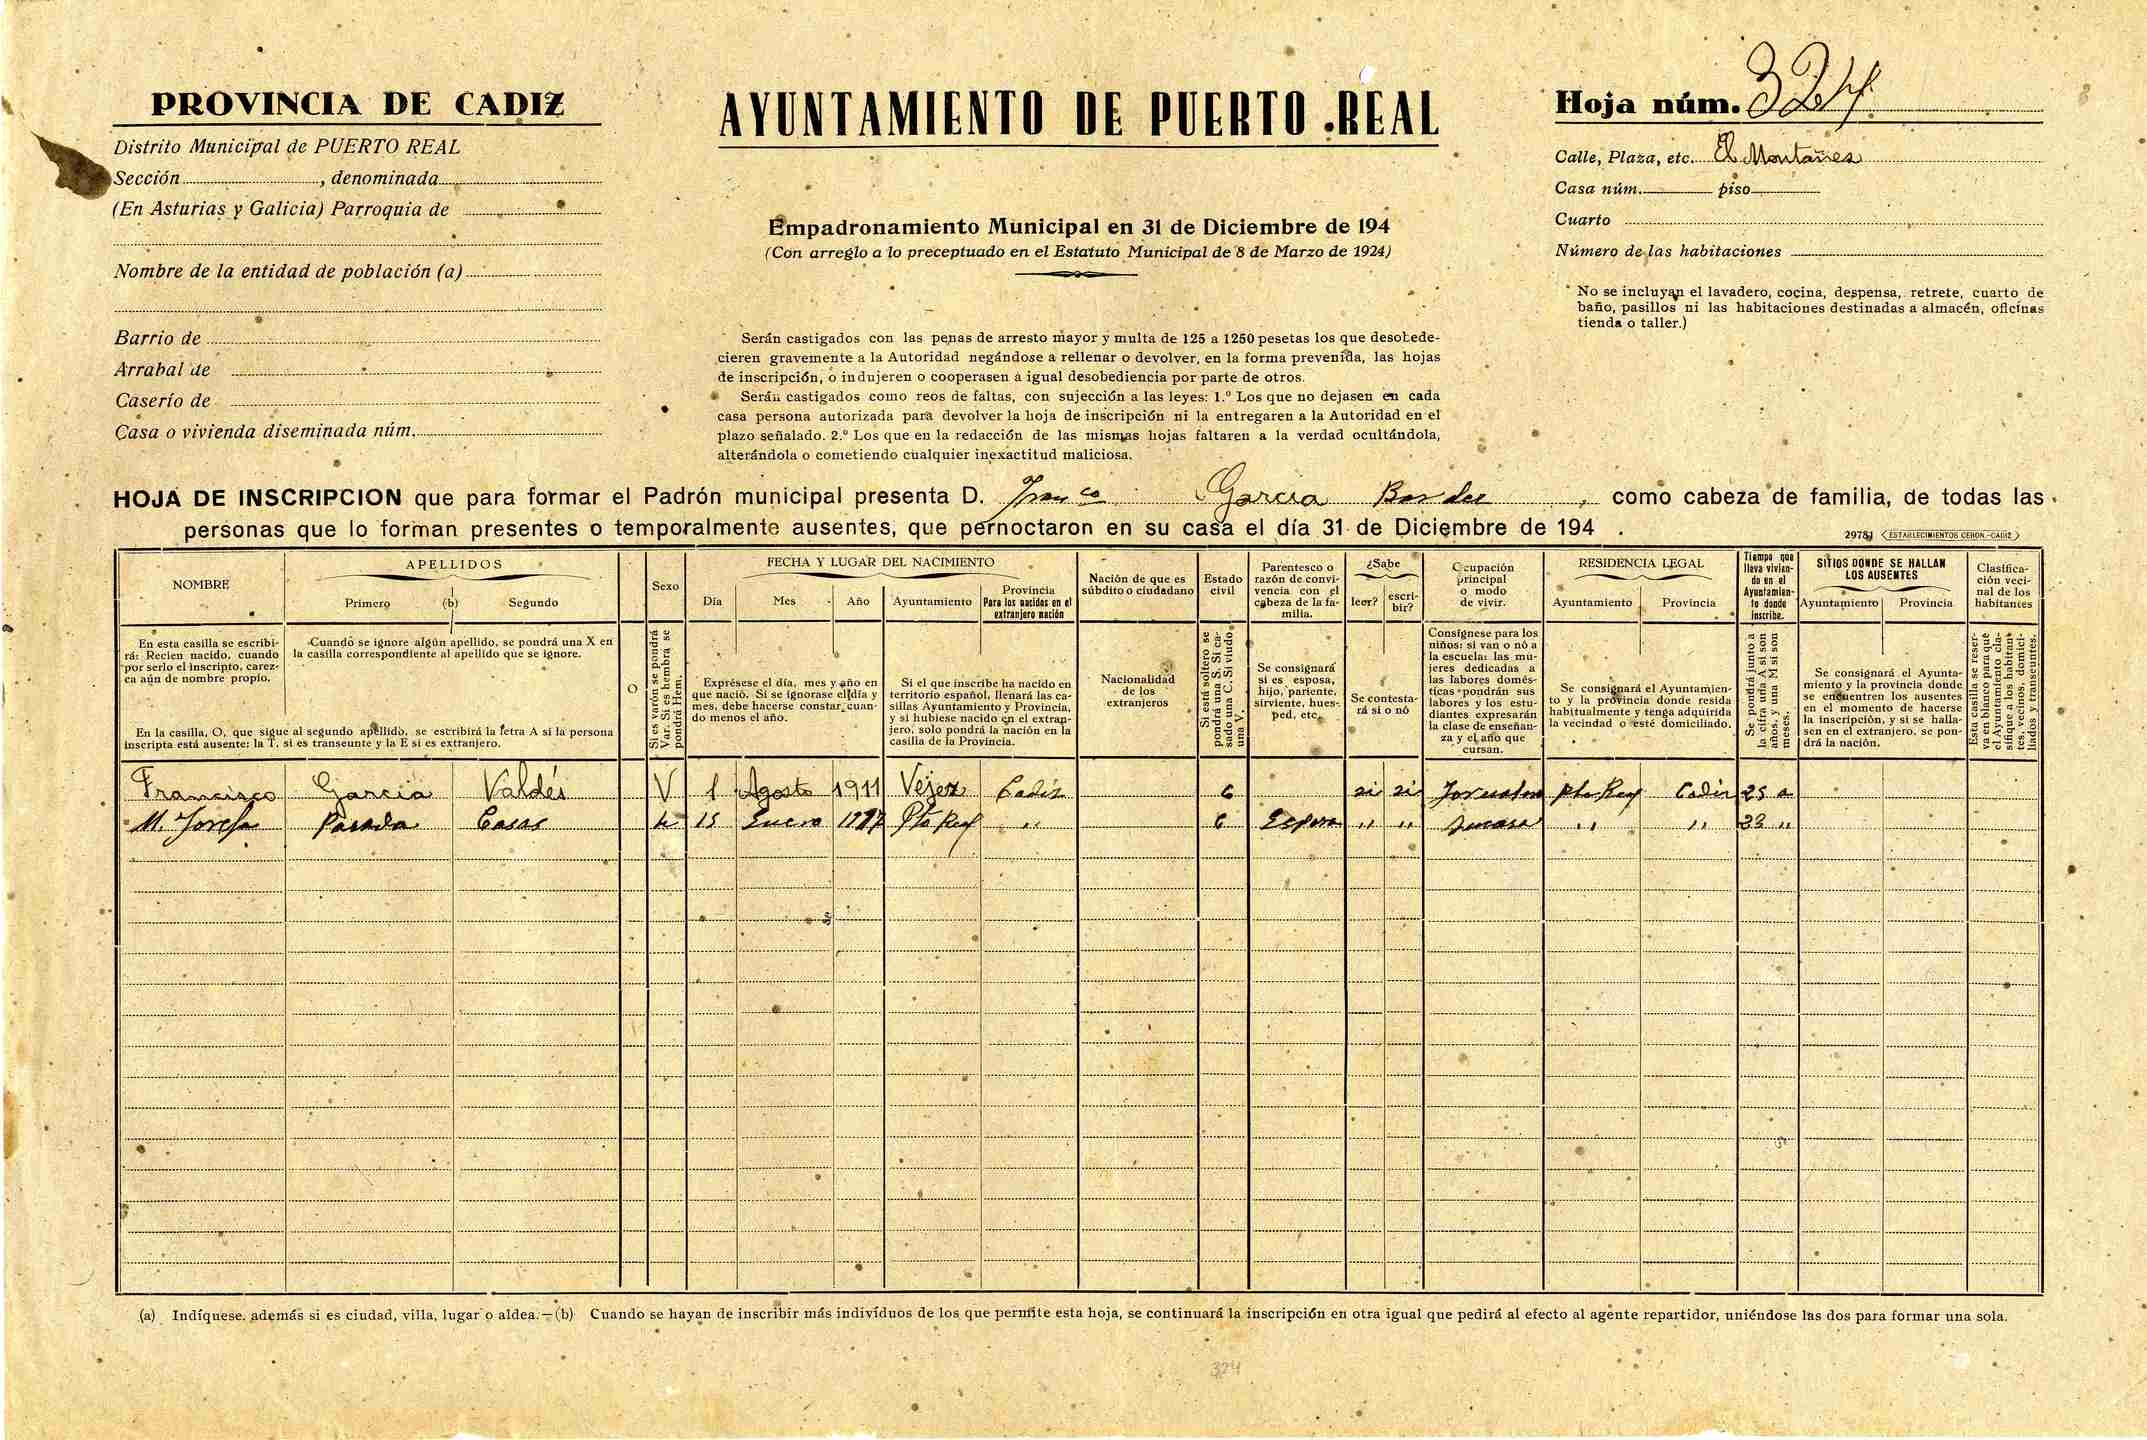 PROVINCIA DE CADIZ
Distrito Municipal de PUERTO REAL
Sección , denominada
(En Asturias y Galicia) Parroquia de
Nombre de la entidad de población (a)
Barrio de
Arrabal de
Caserío de
Casa o vivienda diseminada núm.
AYUNTAMIENTO DE PUERTO REAL
Empadronamiento Municipal en 31 de Diciembre de 194
(Con arreglo a lo preceptuado en el Estatuto Municipal de 8 de Marzo de 1924)
Serán castigados con las penas de arresto mayor y multa de 125 a 1250 pesetas los que desobede-
cieren gravemente a la Autoridad negándose a rellenar o devolver, en la forma prevenida, las hojas
de inscripción, o indujeren o cooperasen a igual desobediencia por parte de otros.
Serán castigados como reos de faltas, con sujección a las leyes: 1.º Los que no dejasen en cada
casa persona autorizada para devolver la hoja de inscripción ni la entregaren a la Autoridad en el
plazo señalado. 2.º Los que en la redacción de las mismas hojas faltaren a la verdad ocultándola,
alterándola o cometiendo cualquier inexactitud maliciosa.
Hoja núm. 324
Calle, Plaza, etc. El Montañes
Casa núm. piso
Cuarto
Número de las habitaciones
No se incluyan el lavadero, cocina, despensa, retrete, cuarto de
baño, pasillos ni las habitaciones destinadas a almacén, oficinas
tienda o taller.)
HOJA DE INSCRIPCION que para formar el Padrón municipal presenta D. Franco Garcia , como cabeza de familia, de todas las
personas que lo forman presentes o temporalmente ausentes, que pernoctaron en su casa el día 31 de Diciembre de 194 .
29781 ESTABLECIMIENTOS CERON.-CADIZ
NOMBRE
APELLIDOS
Primero (b) Segundo
O
Sexo
FECHA Y LUGAR DEL NACIMIENTO
Día Mes Año Ayuntamiento
Provincia
Para los nacidos en el
extranjero nación
Nación de que es
súbdito o ciudadano
Estado
civil
Parentesco o
razón de convi-
vencia con el
cabeza de la fa-
milia.
¿Sabe
leer? escri-
bir?
Ocupación
principal
o modo
de vivir.
RESIDENCIA LEGAL
Ayuntamiento Provincia
Tiempo que
lleva vivien-
do en el
Ayuntamien-
to donde
inscribe.
SITIOS DONDE SE HALLAN
LOS AUSENTES
Ayuntamiento Provincia
Clasifica-
ción veci-
nal de los
habitantes
En esta casilla se escribi-
rá: Recien nacido, cuando
por serlo el inscripto, carez-
ca aún de nombre propio.
Cuando se ignore algún apellido, se pondrá una X en
la casilla correspondiente al apellido que se ignore.
En la casilla, O, que sigue al segundo apellido, se escribirá la letra A si la persona
inscripta está ausente: la T, si es transeunte y la E si es extranjero.
O
Si es varón se pondrá
Var. Si es hembra se
pondrá Hem.
Exprésese el día, mes y año en
que nació. Si se ignorase el día y
mes, debe hacerse constar, cuan-
do menos el año.
Si el que inscribe ha nacido en
territorio español, llenará las ca-
sillas Ayuntamiento y Provincia,
y si hubiese nacido en el extran-
jero, solo pondrá la nación en la
casilla de la Provincia.
Nacionalidad
de los
extranjeros
Si está soltero se
pondrá una S. Si ca-
sado una C. Si viudo
una V.
Se consignará
si es esposa,
hijo, pariente,
sirviente, hues-
ped, etc.
Se contesta-
rá si o nó
Consígnese para los
niños: si van o nó a
la escuela: las mu-
jeres dedicadas a
las labores domés-
ticas pondrán sus
labores y los estu-
diantes expresarán
la clase de enseñan-
za y el año que
cursan.
Se consignará el Ayuntamien-
to y la provincia donde resida
habitualmente y tenga adquirida
la vecindad o esté domiciliado.
Se pondrá junto a
la cifra una A si son
años, y una M si son
meses.
Se consignará el Ayunta-
miento y la provincia donde
se encuentren los ausentes
en el momento de hacerse
la inscripción, y si se halla-
sen en el extranjero, se pon-
drá la nación.
Esta casilla se reser-
va en blanco para que
el Ayuntamiento cla-
sifique a los habitan-
tes, vecinos, domici-
liados y transeuntes.
Francisco Garcia Valdés V 1 Agosto 1911 Vejer Cadiz C si si Pto Real Cadiz 25 a
M. Josefa Parada Casas H 15 Enero Pto Real " C Esposa " " " " 33 "
(a) Indíquese además si es ciudad, villa, lugar o aldea.—(b) Cuando se hayan de inscribir más individuos de los que permite esta hoja, se continuará la inscripción en otra igual que pedirá al efecto al agente repartidor, uniéndose las dos para formar una sola.
324